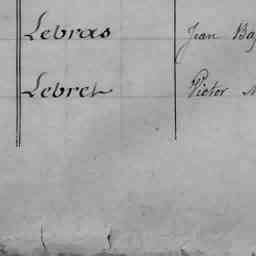 Lebras Jean Ba
Lebret Victor